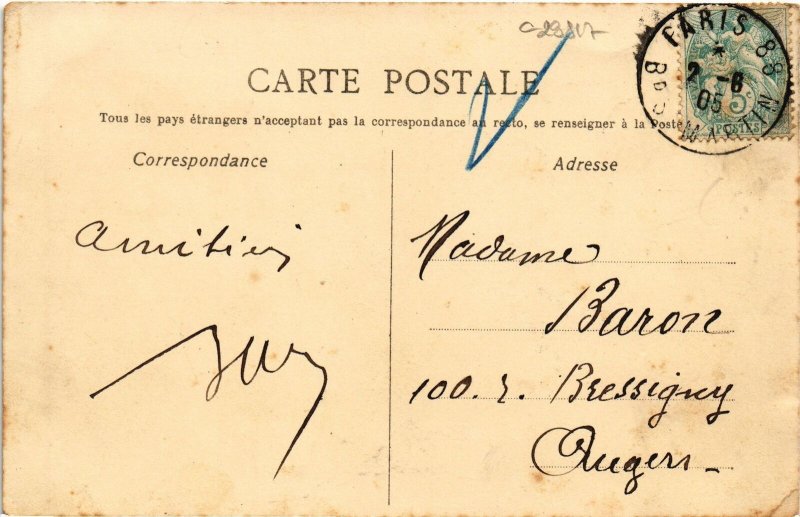 PARIS 88
2 - 6
05
Bd St MARTIN
5c
POSTES
CARTE POSTALE
Tous les pays étrangers n'acceptant pas la correspondance au recto, se renseigner à la Poste
Correspondance
Adresse
Amitiés
Madame
Baron
100. r. Bressigny
Angers -